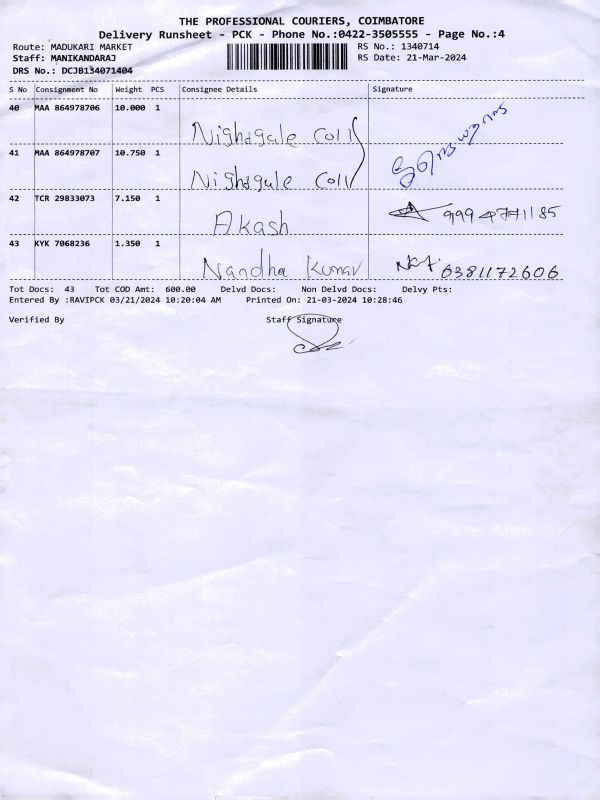 THE PROFESSIONAL COURIERS, COIMBATORE
Delivery Runsheet - PCK - Phone No.:0422-3505555 - Page No.:4
Route: MADUKARI MARKET RS No.: 1340714
Staff: MANIKANDARAJ RS Date: 21-Mar-2024
DRS No.: DCJB134071404
S No Consignment No Weight PCS Consignee Details Signature
40 MAA 864978706 10.000 1
Nightgale Coll
41 MAA 864978707 10.750 1
Nightgale Coll
42 TCR 29833073 7.150 1
Akash
43 KYK 7068236 1.350 1
Nandha Kumar 6381172606
Tot Docs: 43 Tot COD Amt: 600.00 Delvd Docs: Non Delvd Docs: Delvy Pts:
Entered By :RAVIPCK 03/21/2024 10:20:04 AM Printed On: 21-03-2024 10:28:46
Verified By Staff Signature